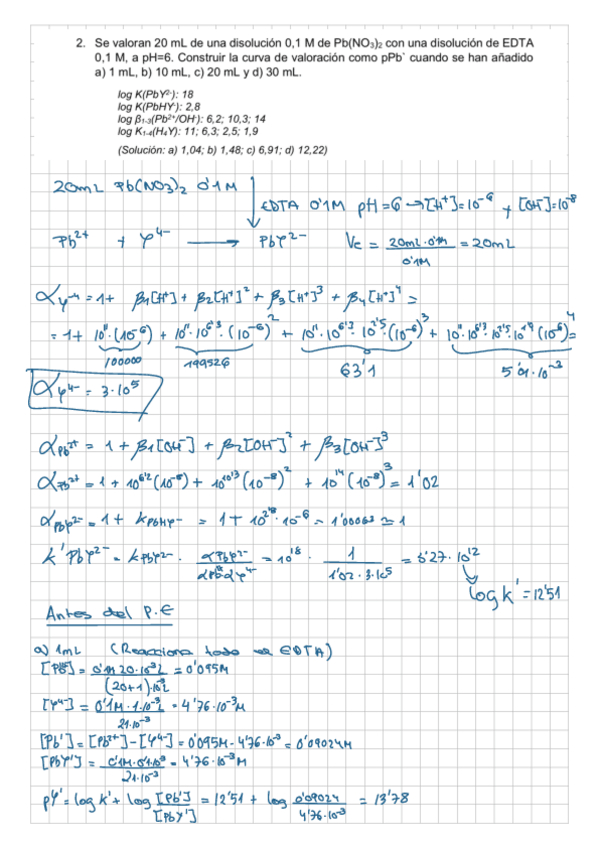 2. Se valoran 20 mL de una disolución 0,1 M de Pb(NO₃)₂ con una disolución de EDTA
0,1 M, a pH=6. Construir la curva de valoración como pPb` cuando se han añadido
a) 1 mL, b) 10 mL, c) 20 mL y d) 30 mL.
log K(PbY²⁻): 18
log K(PbHY⁻): 2,8
log β₁₋₃(Pb²⁺/OH⁻): 6,2; 10,3; 14
log K₁₋₄(H₄Y): 11; 6,3; 2,5; 1,9
(Solución: a) 1,04; b) 1,48; c) 6,91; d) 12,22)
20mL Pb(NO3)2 0'1M
EDTA 0'1M pH=6 → [H⁺]=10⁻⁶ y [OH⁻]=10⁻⁸
Pb²⁺ + Y⁴⁻ → PbY²⁻ Ve = 20mL·0'1M / 0'1M = 20mL
αY⁴⁻ = 1 + β1[H⁺] + β2[H⁺]² + β3[H⁺]³ + β4[H⁺]⁴ =
= 1 + 10¹¹·(10⁻⁶) + 10¹¹·10⁶'³·(10⁻⁶)² + 10¹¹·10⁶'³·10²'⁵(10⁻⁶)³ + 10¹¹·10⁶'³·10²'⁵·10¹'⁹(10⁻⁶)⁴=
100000 199526 63'1 5'01·10⁻³
αY⁴⁻ = 3·10⁵
αPb²⁺ = 1 + β1[OH⁻] + β2[OH⁻]² + β3[OH⁻]³
αPb²⁺ = 1 + 10⁶'²(10⁻⁸) + 10¹⁰'³(10⁻⁸)² + 10¹⁴(10⁻⁸)³ = 1'02
αPbY²⁻ = 1 + KPbHY⁻ = 1 + 10²'⁸·10⁻⁶ = 1'00063 ≃ 1
K'PbY²⁻ = KPbY²⁻ · αPbY²⁻ / αPb²⁺αY⁴⁻ = 10¹⁸ · 1 / 1'02·3·10⁵ = 3'27·10¹²
log K' = 12'51
Antes del P.E
a) 1mL (Reacciona todo EDTA)
[Pb²⁺] = 0'1M 20·10⁻³L / (20+1)·10⁻³L = 0'095M
[Y⁴⁻] = 0'1M·1·10⁻³L / 21·10⁻³ = 4'76·10⁻³M
[Pb'] = [Pb²⁺] - [Y⁴⁻] = 0'095M - 4'76·10⁻³ = 0'09024M
[PbY'] = 0'1M·0'1·10⁻³ / 21·10⁻³ = 4'76·10⁻³M
pY' = log K' + log [Pb'] / [PbY'] = 12'51 + log 0'09024 / 4'76·10⁻³ = 13'78